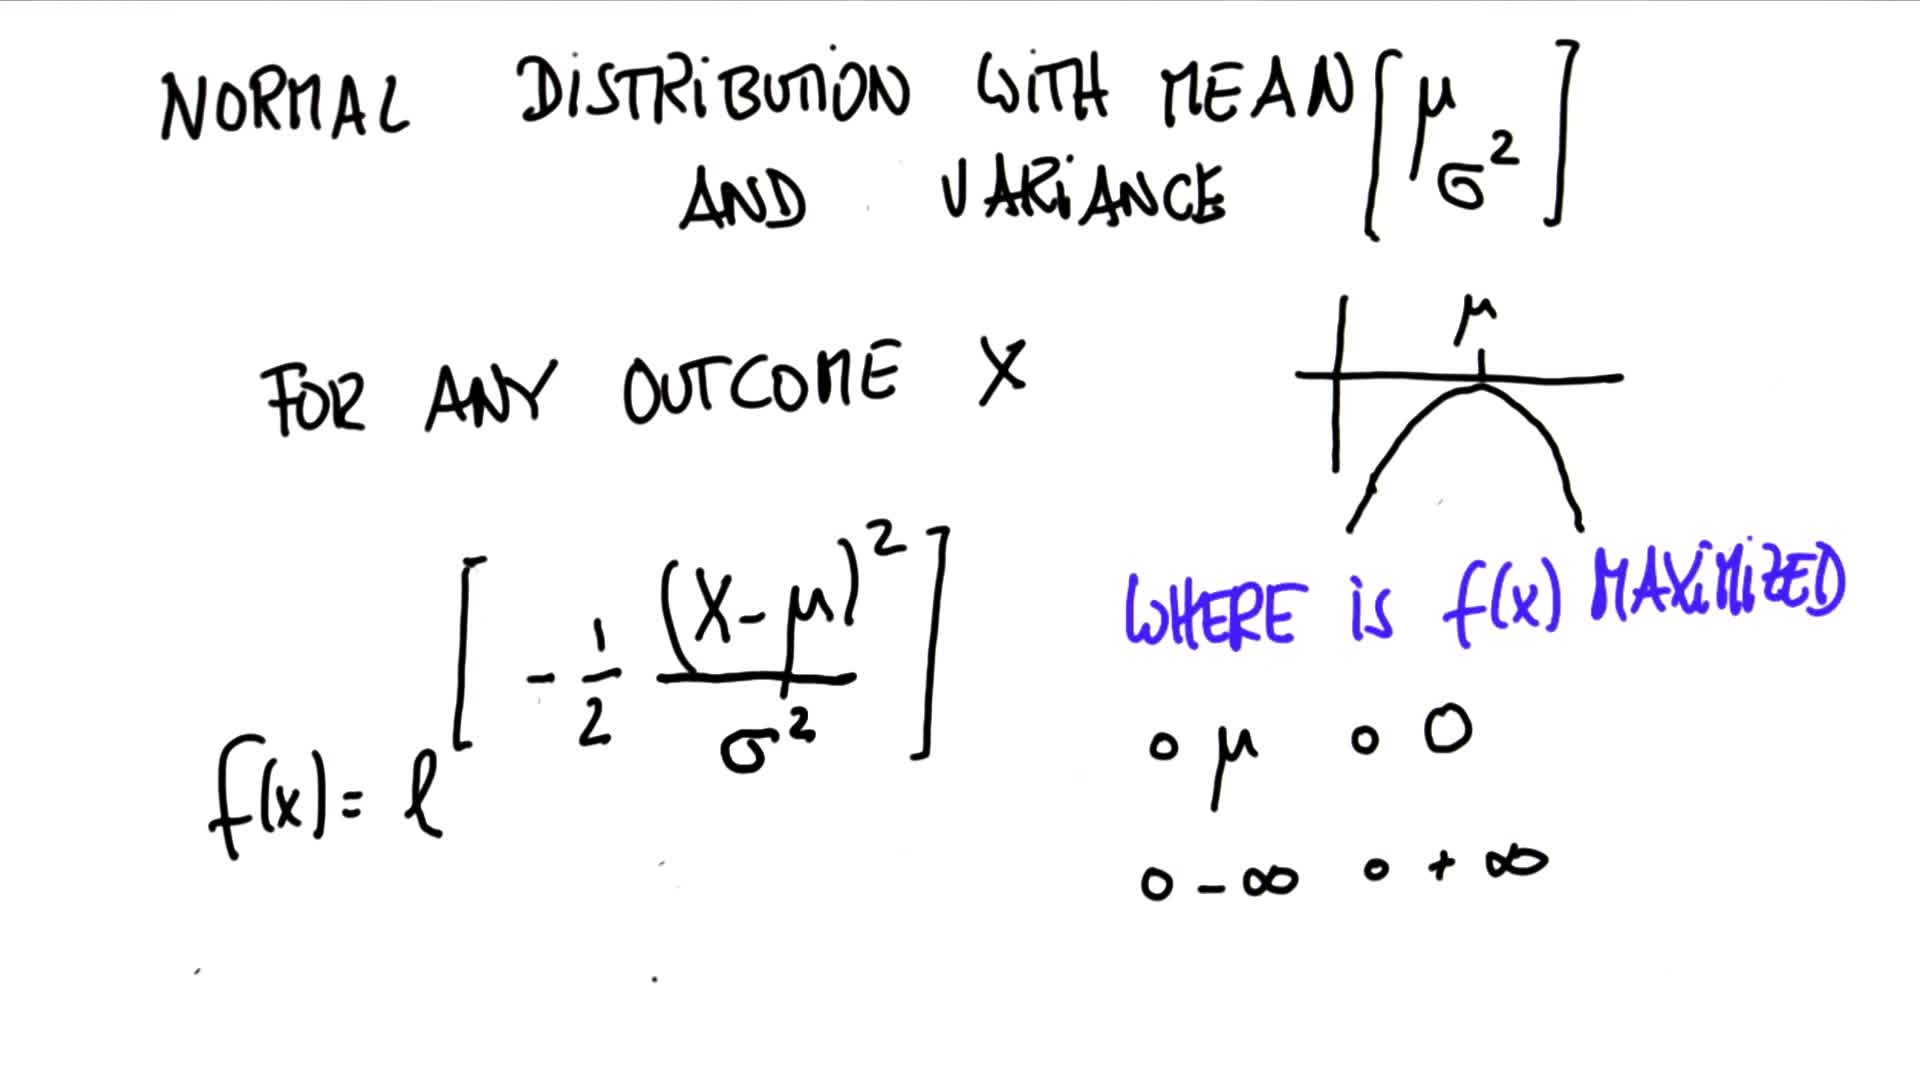 NORMAL DISTRIBUTION WITH MEAN [μ
AND VARIANCE σ²]
μ
FOR ANY OUTCOME X
f(x) = e^[-1/2 (X-μ)²/σ²]
WHERE IS f(x) MAXIMIZED
o μ o 0
o -∞ o +∞